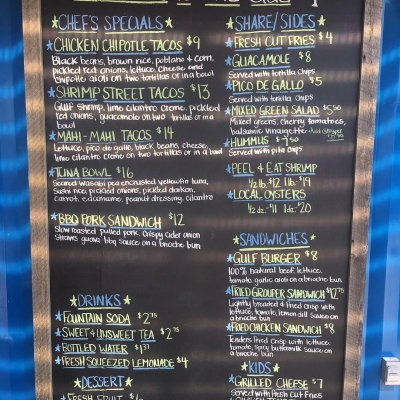 CHEF'S SPECIALS
CHICKEN CHIPOTLE TACOS $9
Black beans, brown rice, poblano & corn,
pickled red onions, lettuce, cheese and
chipotle aioli on two tortillas or in a bowl
SHRIMP STREET TACOS $13
Gulf shrimp, lime cilantro creme, pickled
red onions, guacamole on two tortillas
or in a bowl
MAHI-MAHI TACOS $14
Lettuce, pico de gallo, black beans, cheese,
lime cilantro creme on two tortillas or in a bowl
TUNA BOWL $16
Seared wasabi pea encrusted yellowfin tuna,
Sushi rice, pickled onions, pickled daikon,
Carrot, edamame, peanut dressing, cilantro
BBQ PORK SANDWICH $12
Slow roasted pulled pork, Crispy cider onion
Straws, bbq sauce on a brioche bun
DRINKS
FOUNTAIN SODA $2.75
SWEET & UNSWEET TEA $2.75
BOTTLED WATER
FRESH SQUEEZED LEMONADE $4
DESSERT
FRESH FRUIT
SHARE/SIDES
FRESH CUT FRIES $4
GUACAMOLE $8
Served with tortilla chips
PICO DE GALLO $5
Served with tortilla chips
MIXED GREEN SALAD $5.50
Mixed greens, cherry tomatoes,
balsamic vinaigrette
HUMMUS
Served with pita chips
PEEL & EAT SHRIMP
1/2 lb. $12 1 lb. $19
LOCAL OYSTERS
1/2 dz. $11 1 dz. $20
SANDWICHES
GULF BURGER $8
100% natural beef, lettuce,
tomato, garlic aioli on a brioche bun
FRIED GROUPER SANDWICH $12.75
Lightly breaded & fried crisp with
lettuce, tomato, lemon dill sauce on
a brioche bun
FRIED CHICKEN SANDWICH $8
Tenders fried crisp with lettuce,
tomato, spicy buttermilk sauce on
a brioche bun
KIDS
GRILLED CHEESE $7
Served with Fresh Cut Fries